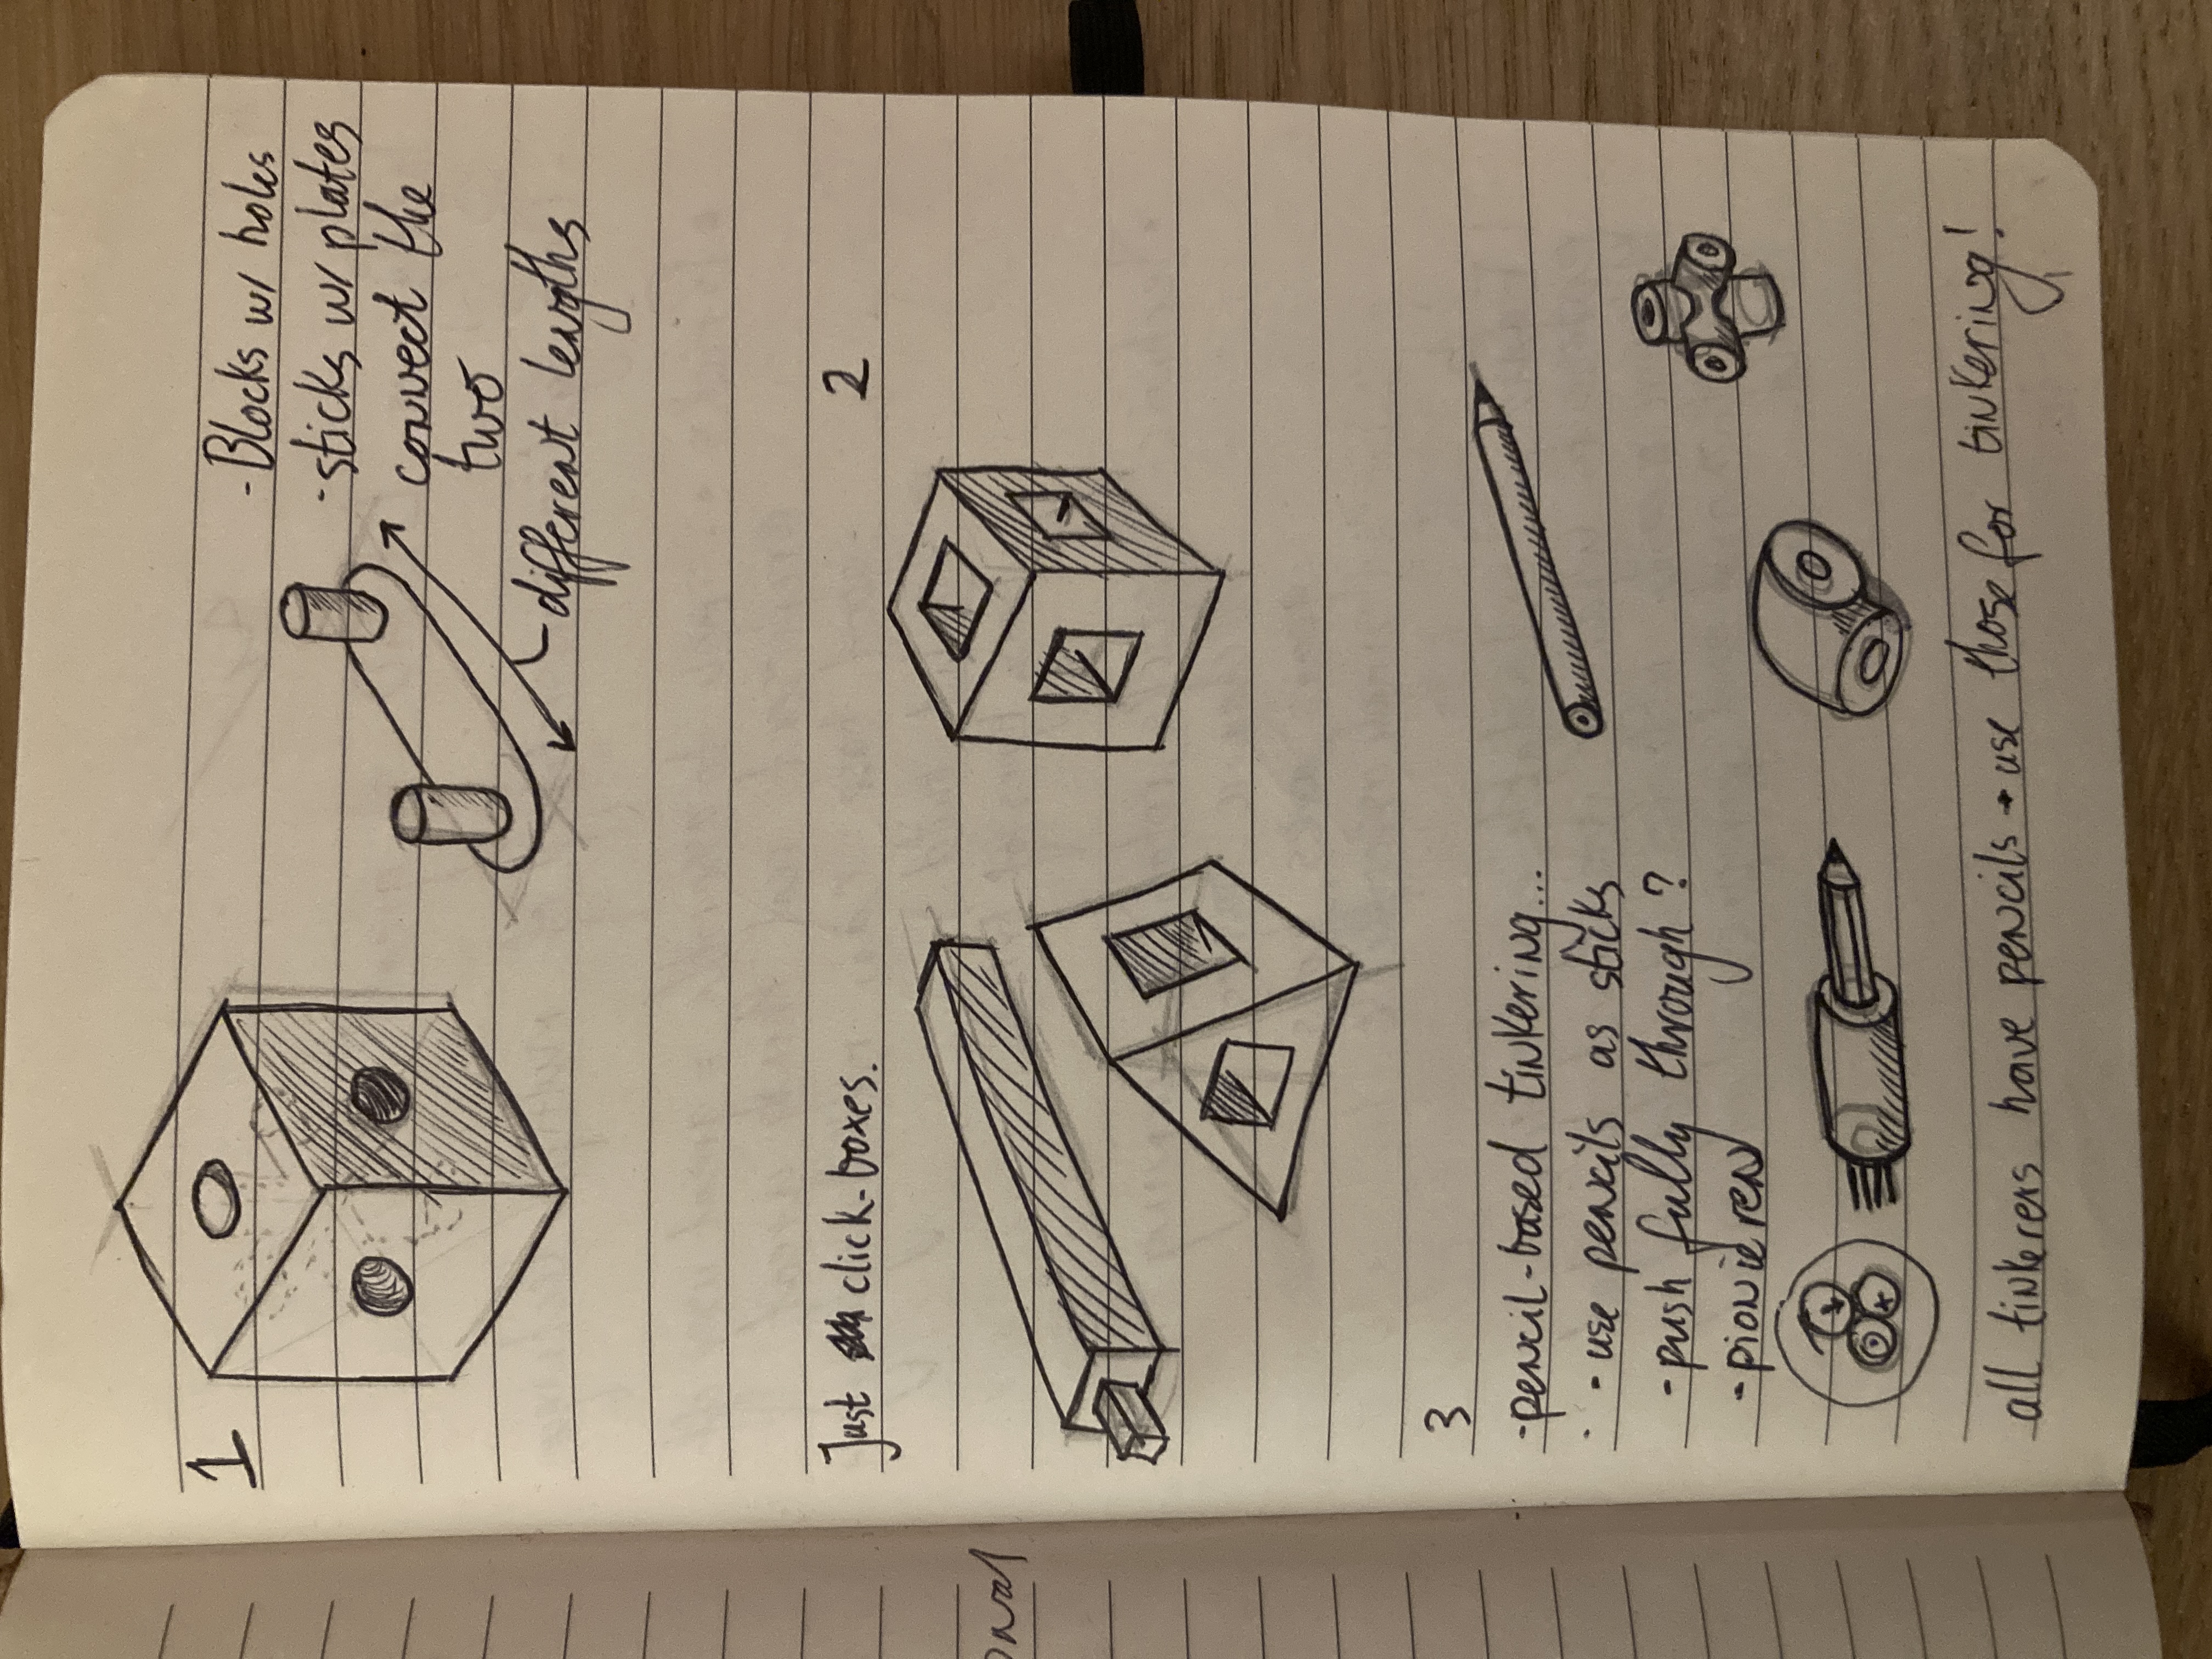 1
- Blocks w/ holes
- sticks w/ plates
connect the
two
different lengths
Just click-boxes.
2
3
- pencil-based tinkering...
- use pencils as sticks
- push fully through?
- pionieren
all tinkerers have pencils → use those for tinkering!